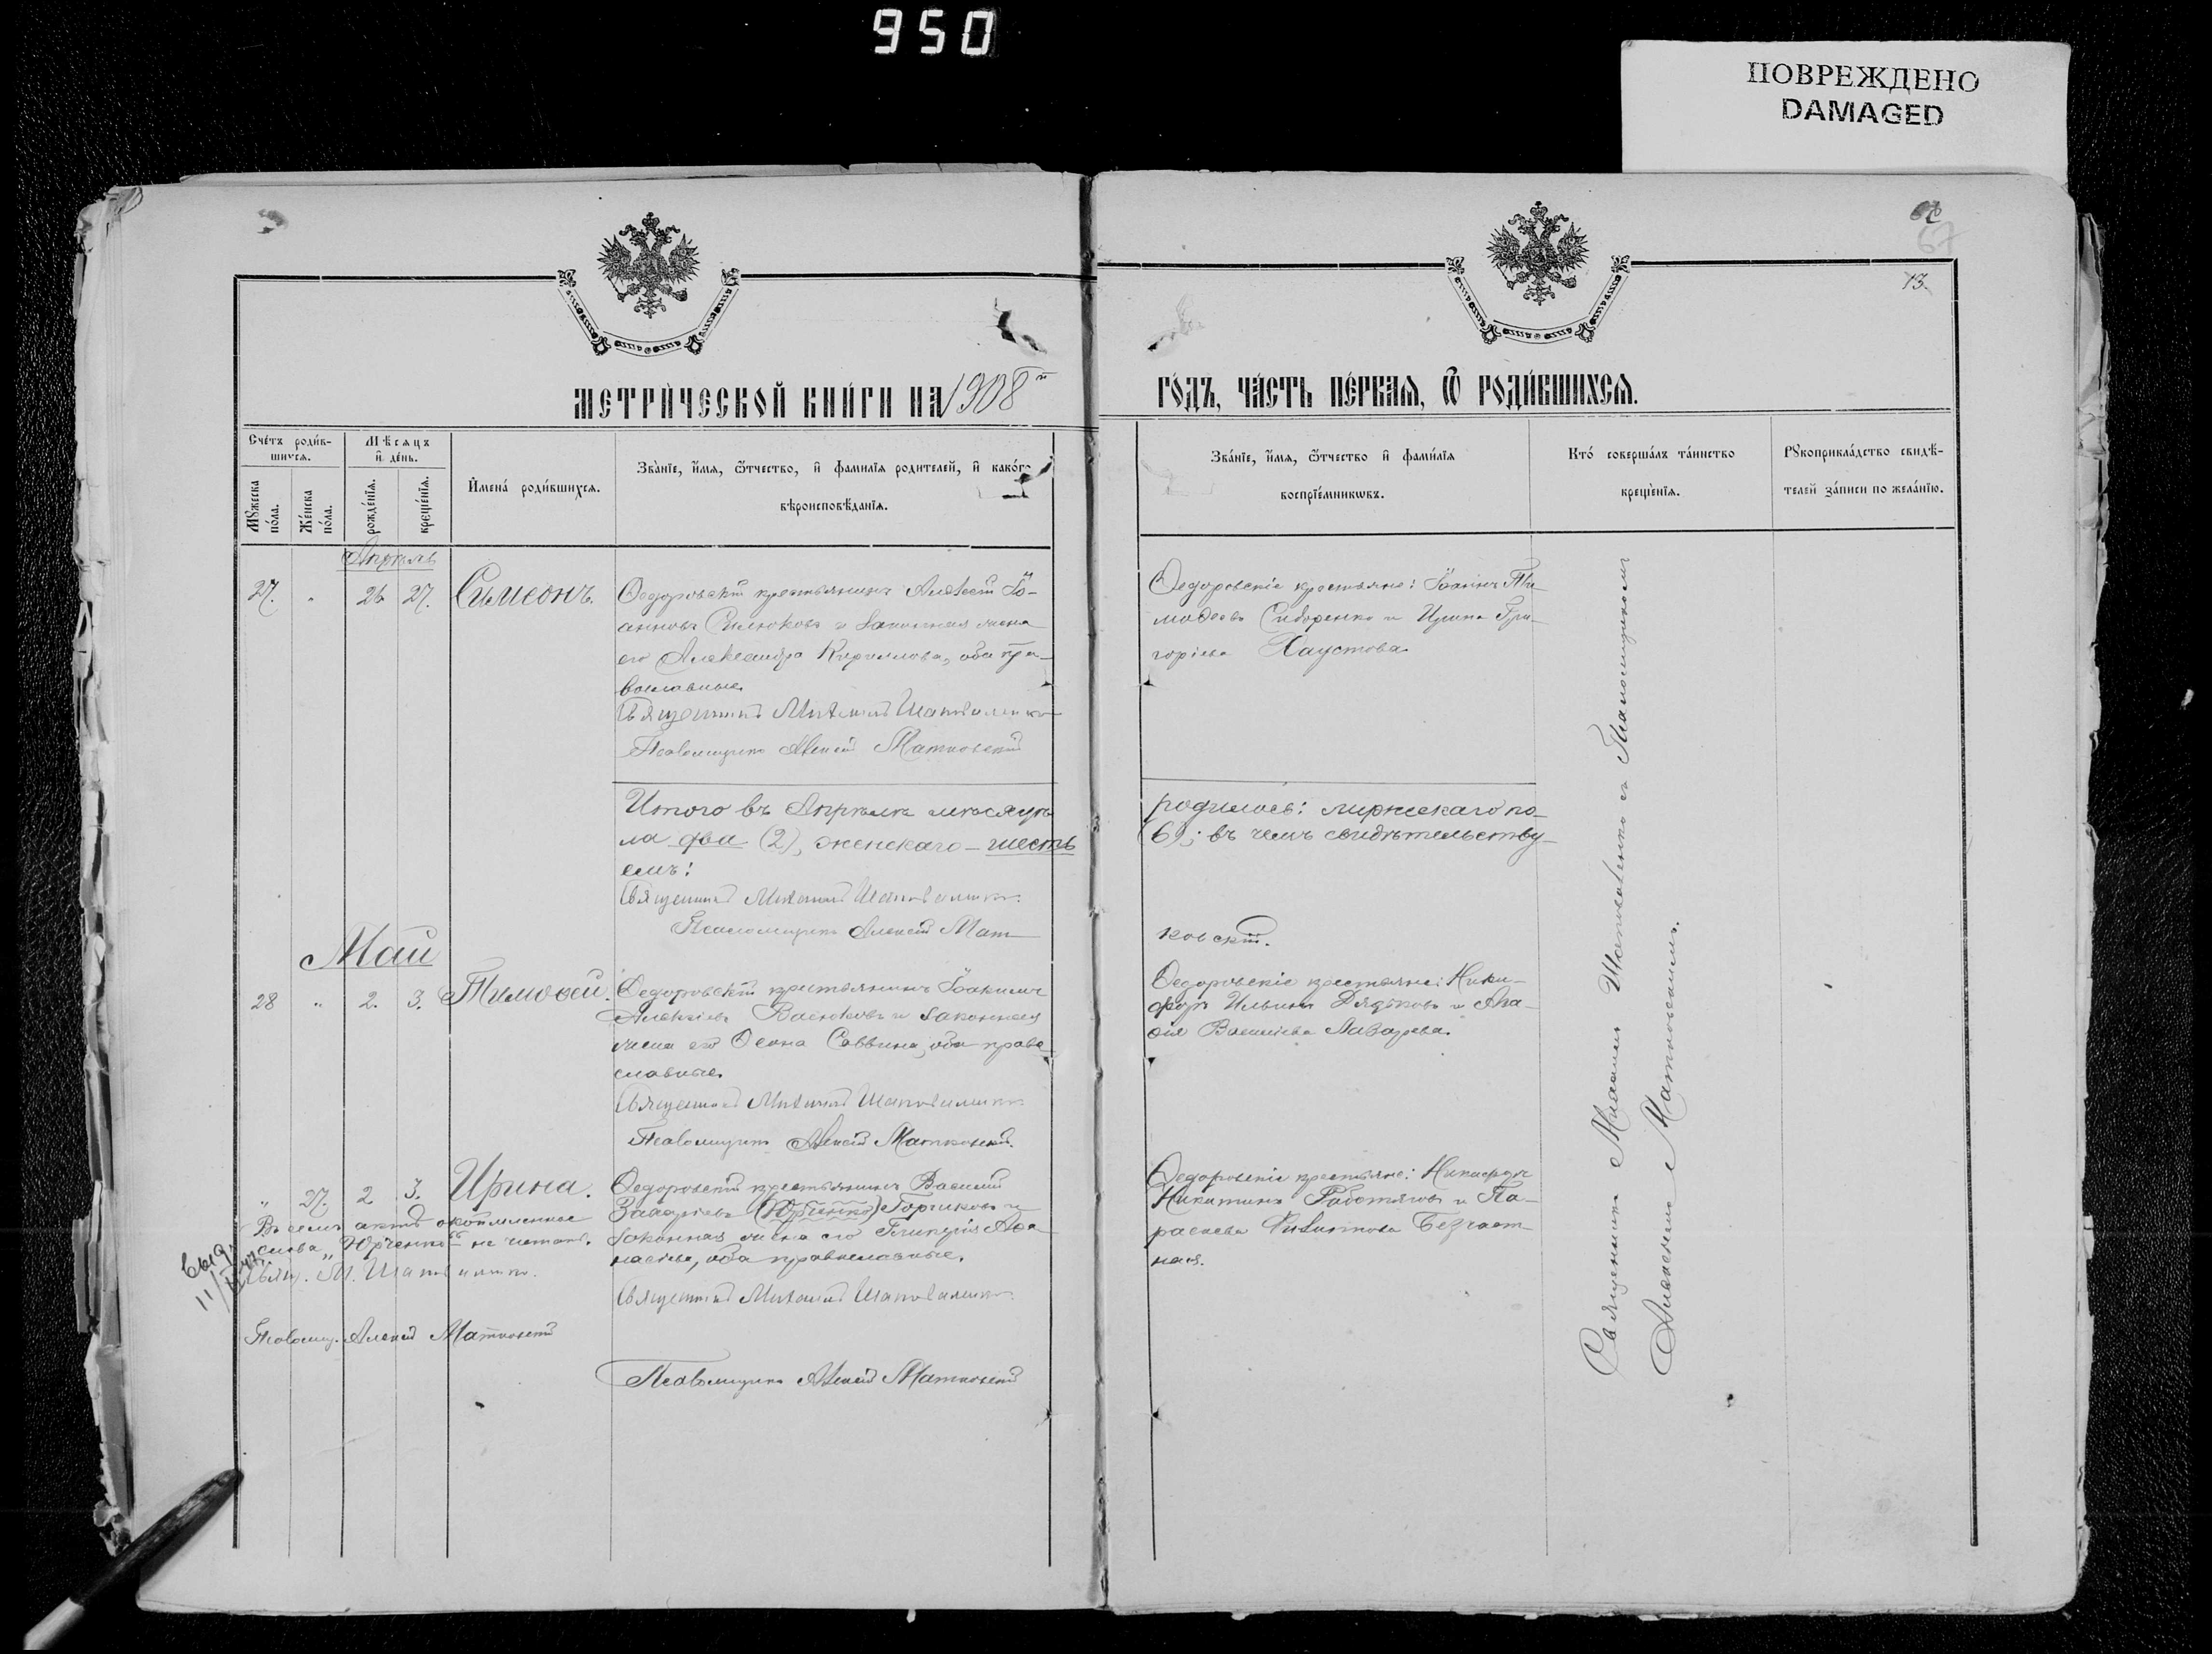 950
ПОВРЕЖДЕНО
DAMAGED
67
13.
МЕТРИЧЕСКОЙ КНИГИ НА 1908й
ГОДЪ, ЧАСТЬ ПЕРВАЯ, Ѿ РОДИВШИХСЯ.
Счетъ родив-
шихся.
Мѣсяцъ
и день.
Мужеска
пола.
Женска
пола.
рожденія.
крещенія.
Имена родившихся.
Званіе, имя, ѿтчество, и фамилія родителей, и какого
вѣроисповѣданія.
Званіе, имя, ѿтчество и фамилія
воспріемникѡвъ.
Кто совершалъ таинство
крещенія.
Рукоприкладство свидѣ-
телей записи по желанію.
Апрѣль
27. " 26 27. Симеонъ.
Ѳедоровскій крестьянинъ Алексѣй Іо-
анновъ и законная жена
его Александра Кириллова, оба пра-
вославные.
Священникъ Михаилъ Шаповаленко
Псаломщикъ Алексій Матковскій
Ѳедоровскіе крестьяне: Іоаннъ Ти-
моѳеевъ Сидоренко и Ирина Гри-
горіева Хаустова.
Итого въ Апрѣлѣ мѣсяцѣ
родилось: мужескаго по-
ла два (2), женскаго – шесть
(6); въ чемъ свидѣтельству-
емъ:
Священникъ Михаилъ Шаповаленко.
Псаломщикъ Алексій Мат-
ковскій.
Май
28 " 2. 3. Тимоѳей.
Ѳедоровскій крестьянинъ Іоакимъ
Алексіевъ Васюковъ и законная
жена его Саввина, оба право-
славные.
Священникъ Михаилъ Шаповаленко
Псаломщикъ Алексій Матковскій.
Ѳедоровскіе крестьяне: Ники-
форъ Ильинъ Дядьковъ и Ага-
ѳія Василіева Лазарева.
" 27. 2 3. Ирина.
Ѳедоровскій крестьянинъ Василій
Захаріевъ (Юрченко) Горчиковъ и
законная жена его Гликерія Аѳа-
насіева, оба православные.
Священникъ Михаилъ Шаповаленко.
Псаломщикъ Алексій Матковскій
Ѳедоровскіе крестьяне: Никифоръ
Никитинъ Работяговъ и Па-
раскева Филиппова Безчаст-
ная.
Въ семъ актѣ окоймленное
слово "Юрченко" не читать.
Свящ. М. Шаповаленко.
Псаломщ. Алексій Матковскій
Священникъ Михаилъ Шаповаленко съ Псаломщикомъ
Алексіемъ Матковскимъ.